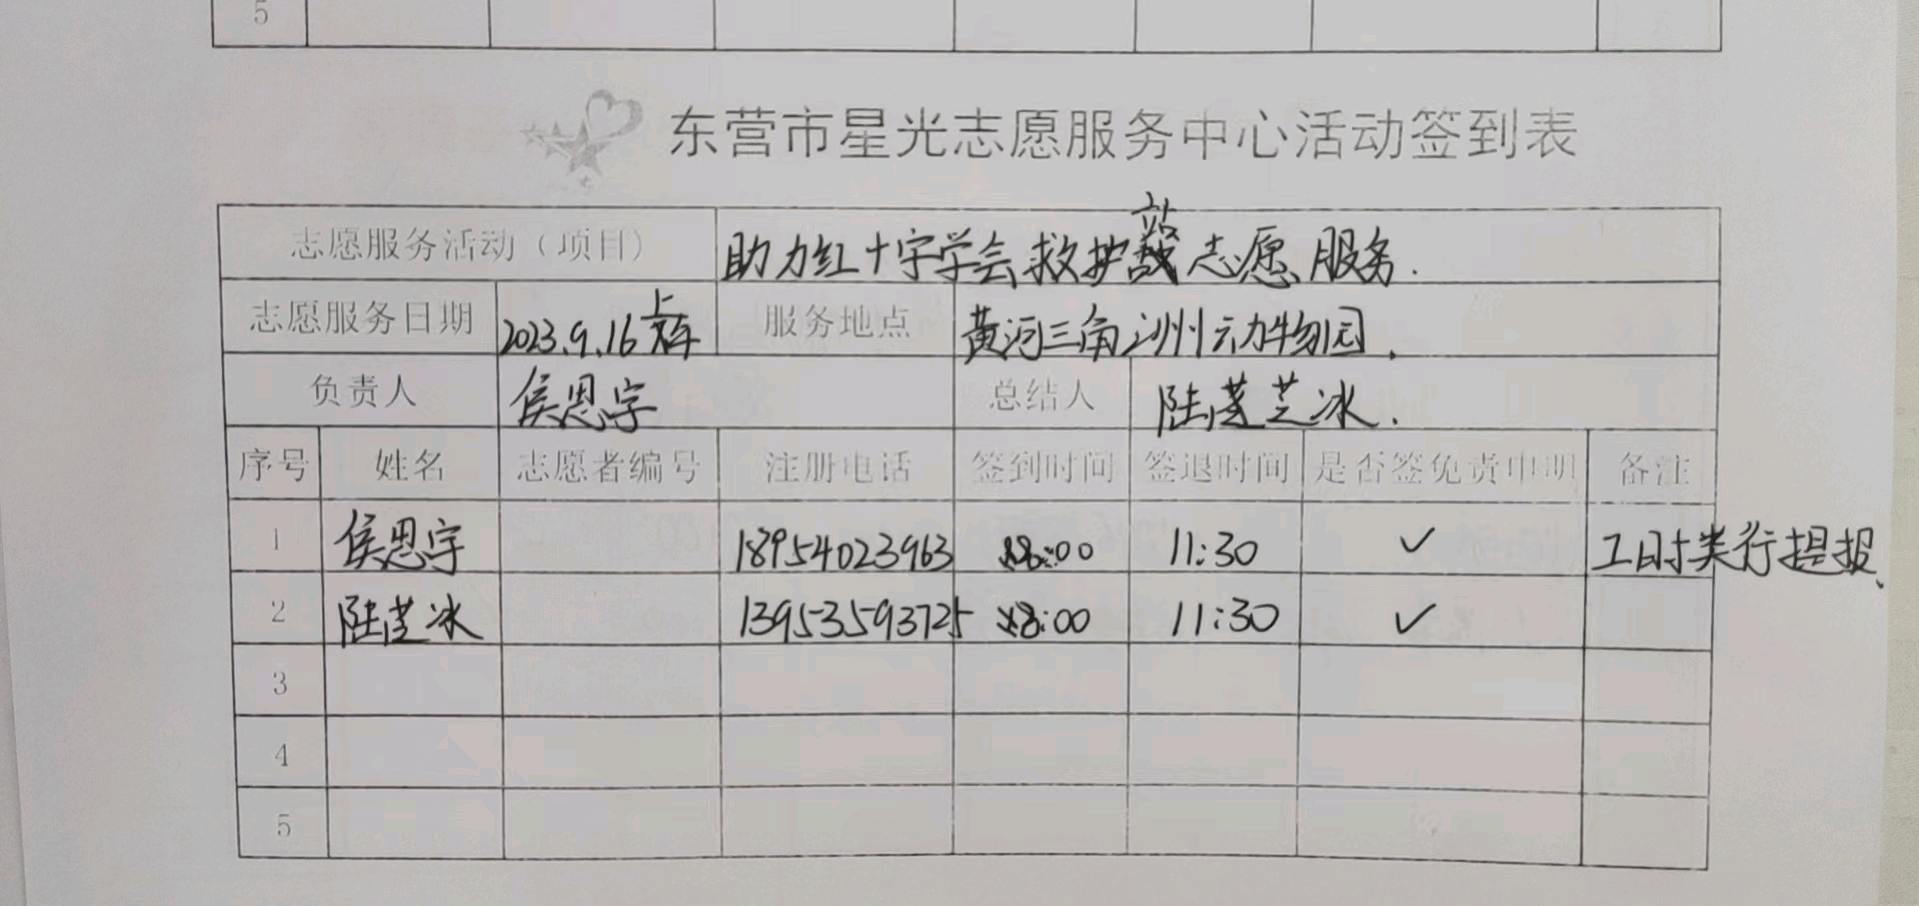 5
东营市星光志愿服务中心活动签到表
志愿服务活动（项目） 助力红十字学会救护站志愿服务.
志愿服务日期 2023.9.16上午 服务地点 黄河三角洲动物园.
负责人 侯恩宇 总结人 陆芝冰.
序号 姓名 志愿者编号 注册电话 签到时间 签退时间 是否签免责申明 备注
1 侯恩宇 18954023963 8:00 11:30 ✓ 工时类行提报、
2 陆芝冰 13953593725 8:00 11:30 ✓
3
4
5